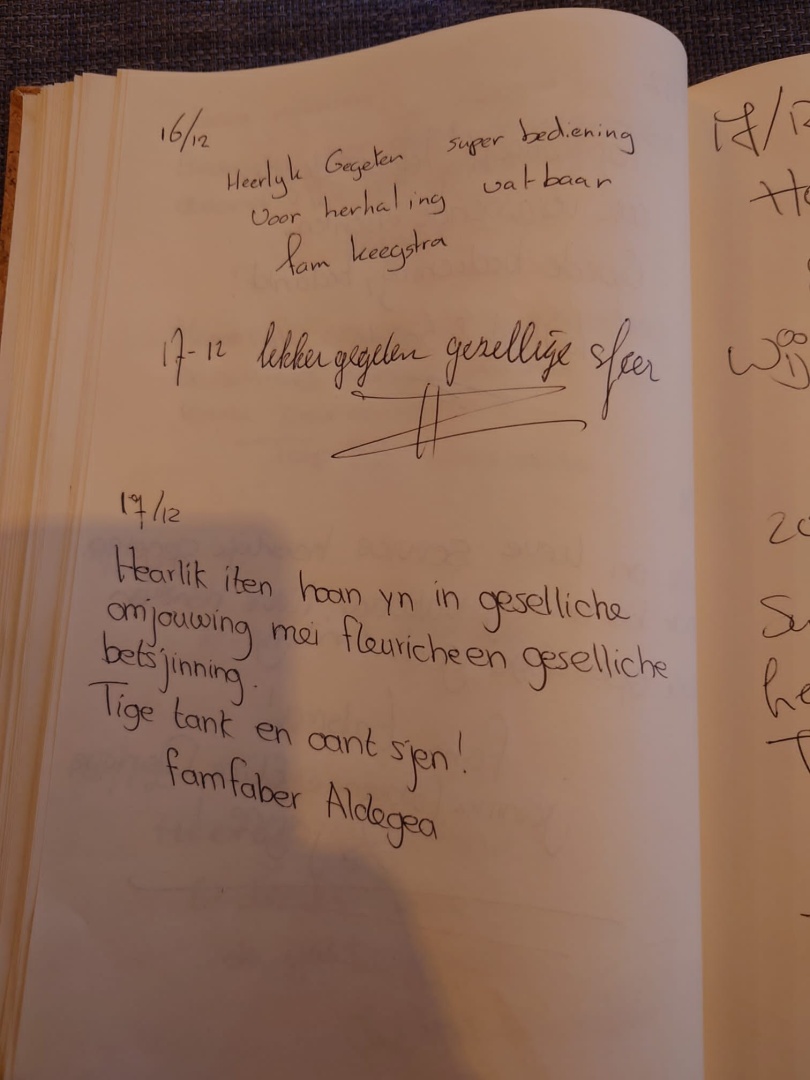 16/12
Heerlyk Gegeten super bediening
voor herhaling vatbaar
fam keegstra
17-12 lekker gegeten gezellige sfeer
17/12
Hearlik iten hoan yn in geselliche
omjouwing mei fleuricheen geselliche
betsjinning.
Tige tank en oant sjen!
famfaber Aldegea
17/12
Wij